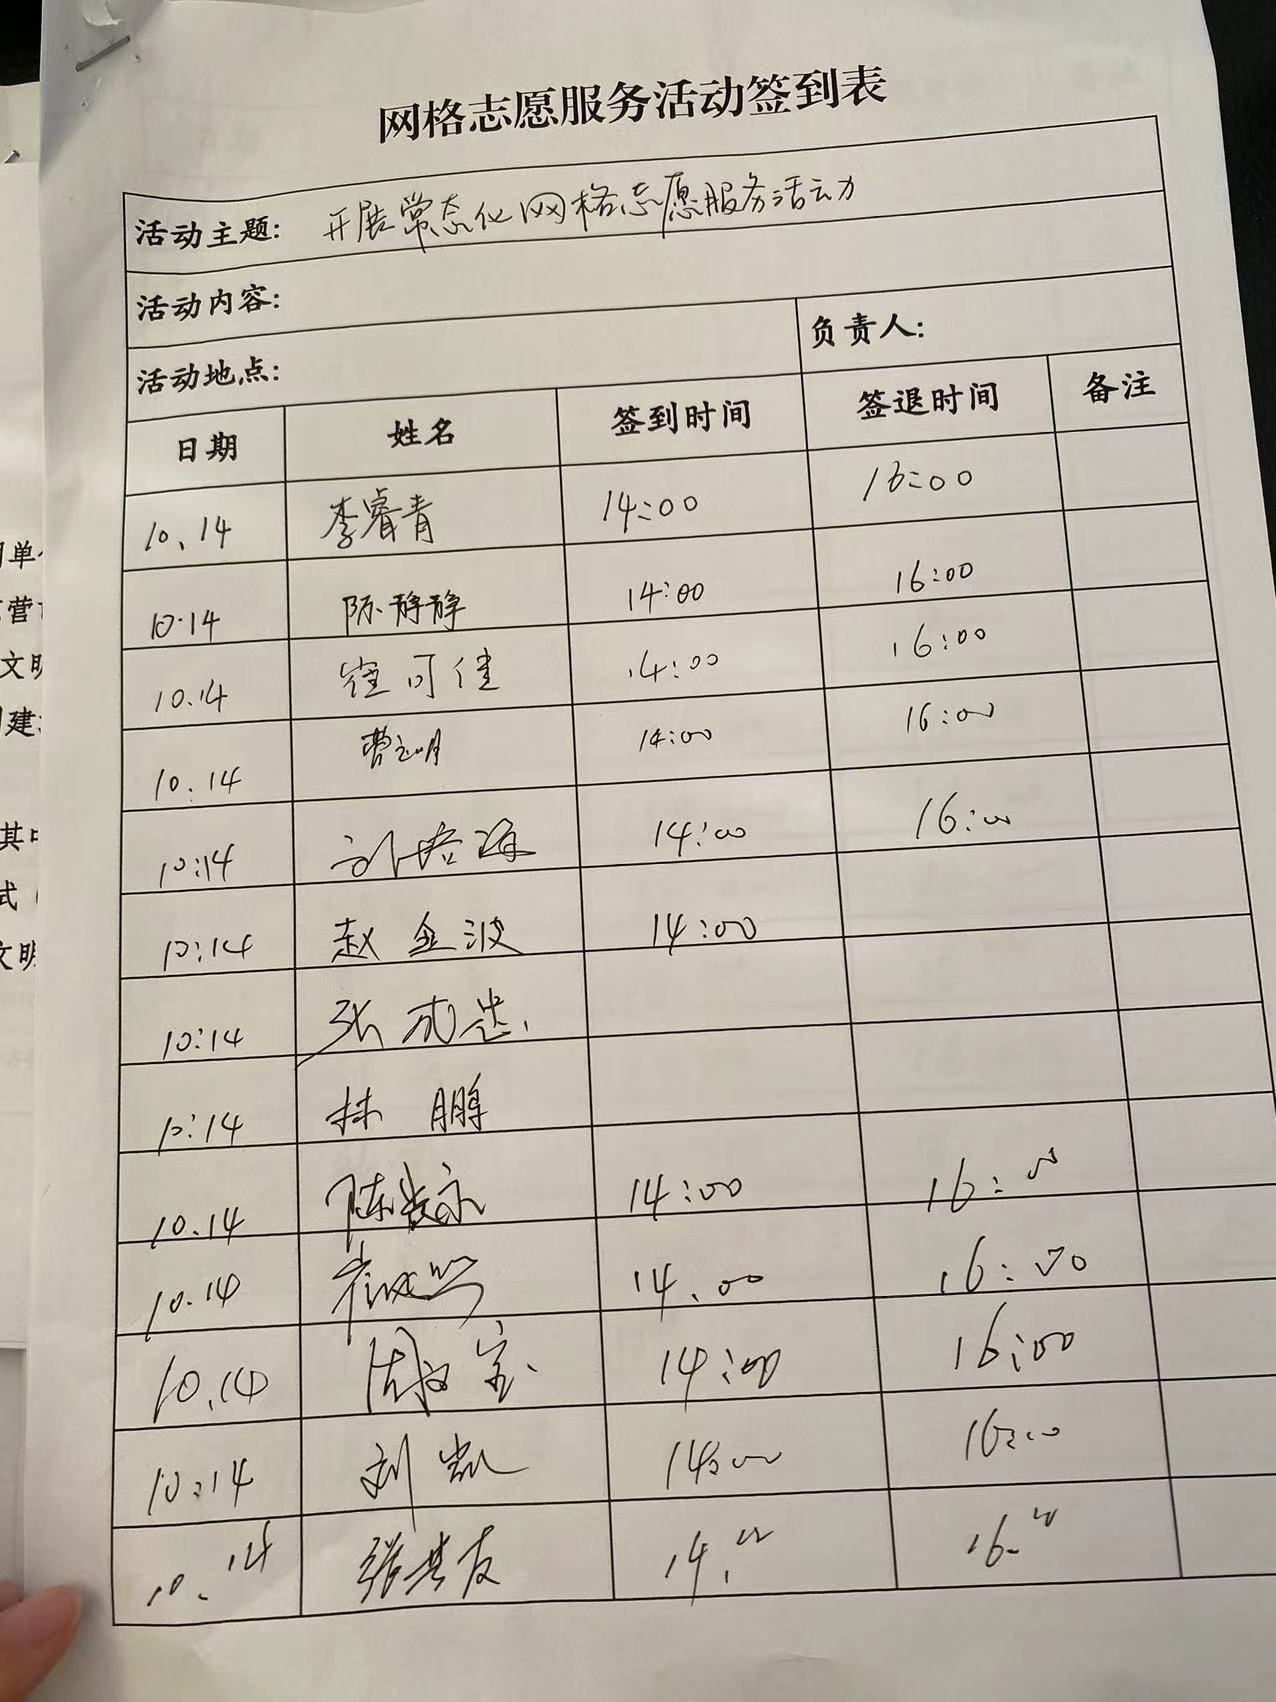 网格志愿服务活动签到表
活动主题: 开展常态化网格志愿服务活动
活动内容:
活动地点: 负责人:
日期 姓名 签到时间 签退时间 备注
10.14 李睿青 14:00 16:00
10.14 陈静静 14:00 16:00
10.14 崔可佳 14:00 16:00
10.14 曹 14:00 16:00
10:14 刘培 14:00 16:00
10:14 赵金波 14:00
10:14 张成忠
10:14 林鹏
10.14 陈 永 14:00 16:00
10.14 崔 14.00 16:00
10.14 周 宝 14:00 16:00
10:14 刘凯 14:00 16:00
10.14 张 友 14.00 16.00
司单
营
文明
建
其中
式(
文明